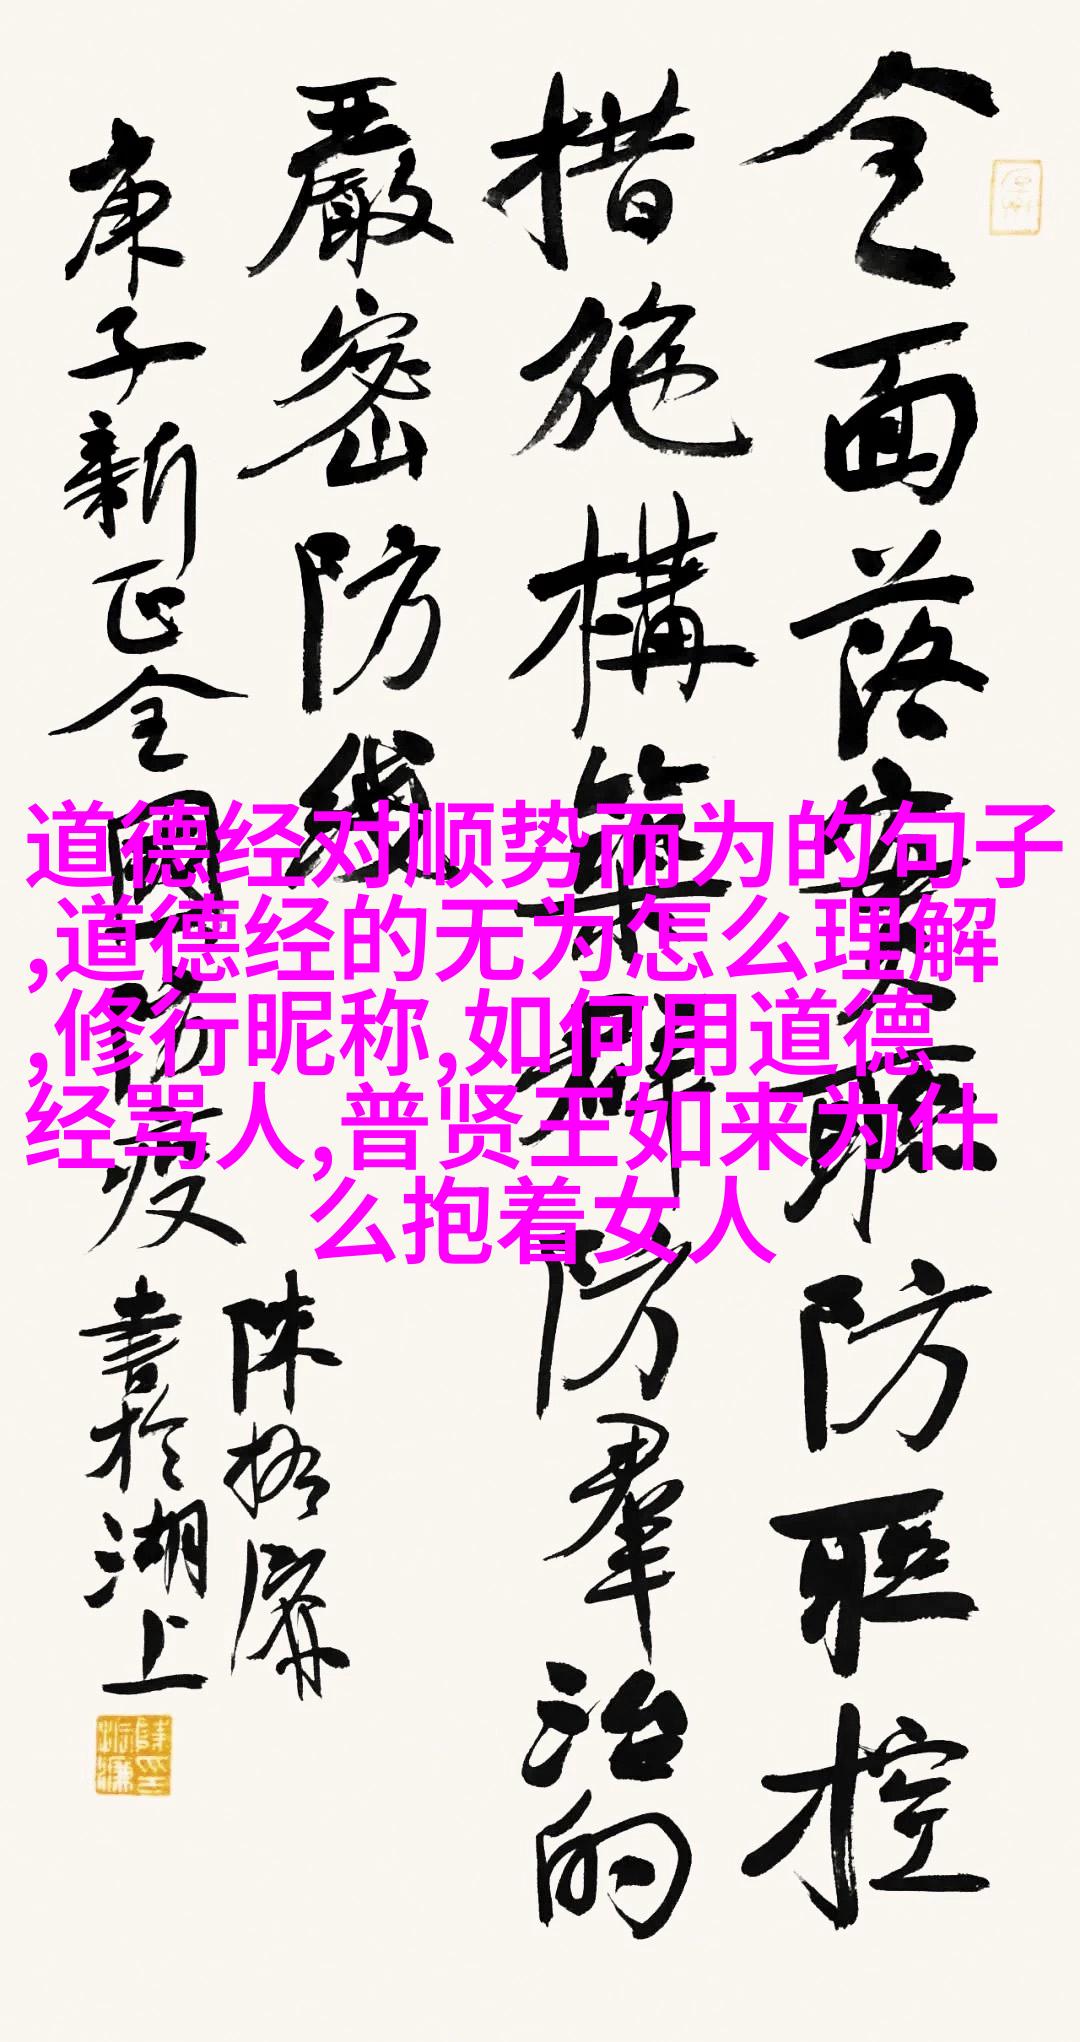 全面落实联防联控
措施構築群防羣治的
嚴密防线
庚子新正全國防疫
陳振濂
書於湖上
道德经对顺势而为的句子
,道德经的无为怎么理解
,修行昵称,如何用道德
经骂人,普贤王如来为什
么抱着女人